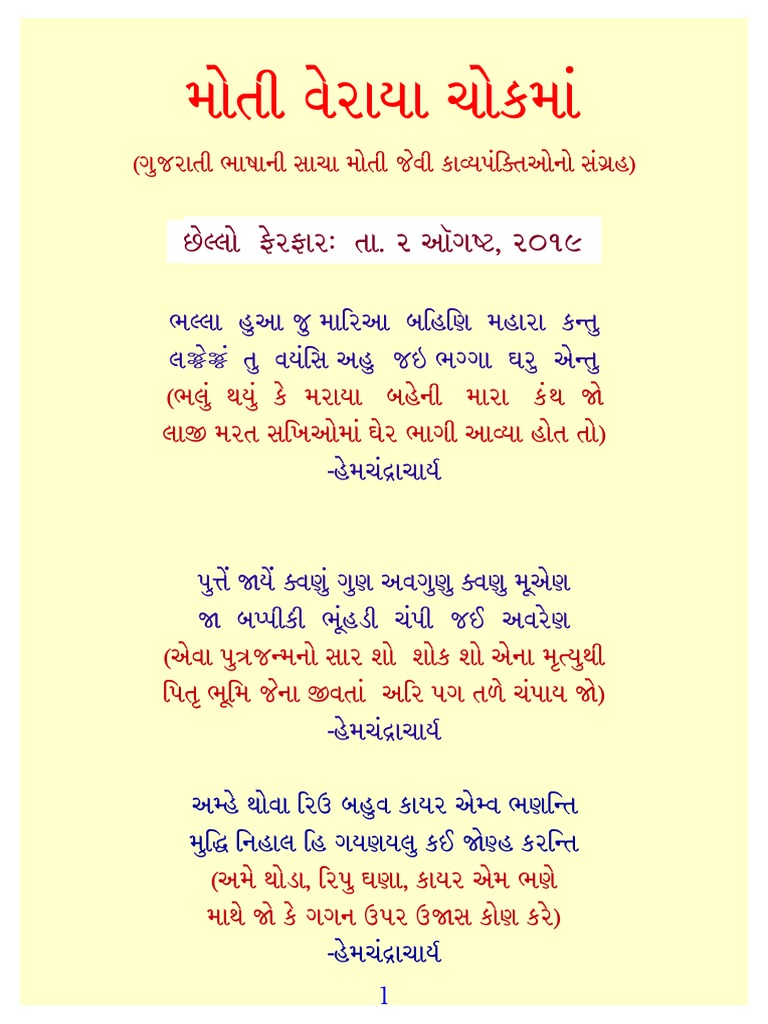 મોતી વેરાયા ચોકમાં
(ગુજરાતી ભાષાની સાચા મોતી જેવી કાવ્યપંક્તિઓનો સંગ્રહ)
છેલ્લો ફેરફારઃ તા. ૨ ઑગષ્ટ, ૨૦૧૯
ભલ્લા હુઆ જુ મારિઆ બહિણિ મહારા કન્તુ
તુ વયંસિ અહુ જઇ ભગ્ગા ઘરુ એન્તુ
(ભલું થયું કે મરાયા બહેની મારા કંથ જો
લાજી મરત સખિઓમાં ઘેર ભાગી આવ્યા હોત તો)
-હેમચંદ્રાચાર્ય
પુત્તેં જાયેં ક્વણું ગુણ અવગુણુ ક્વણુ મૂએણ
જા બપ્પીકી ભૂંહડી ચંપી જઈ અવરેણ
(એવા પુત્રજન્મનો સાર શો શોક શો એના મૃત્યુથી
પિતૃ ભૂમિ જેના જીવતાં અરિ પગ તળે ચંપાય જો)
-હેમચંદ્રાચાર્ય
અમ્હે થોવા રિઉ બહુવ કાયર એમ્વ ભણન્તિ
મુદ્ધિ નિહાલ હિ ગયણયલુ કઈ જોણ્હ કરન્તિ
(અમે થોડા, રિપુ ઘણા, કાયર એમ ભણે
માથે જો કે ગગન ઉપર ઉજાસ કોણ કરે)
-હેમચંદ્રાચાર્ય
1